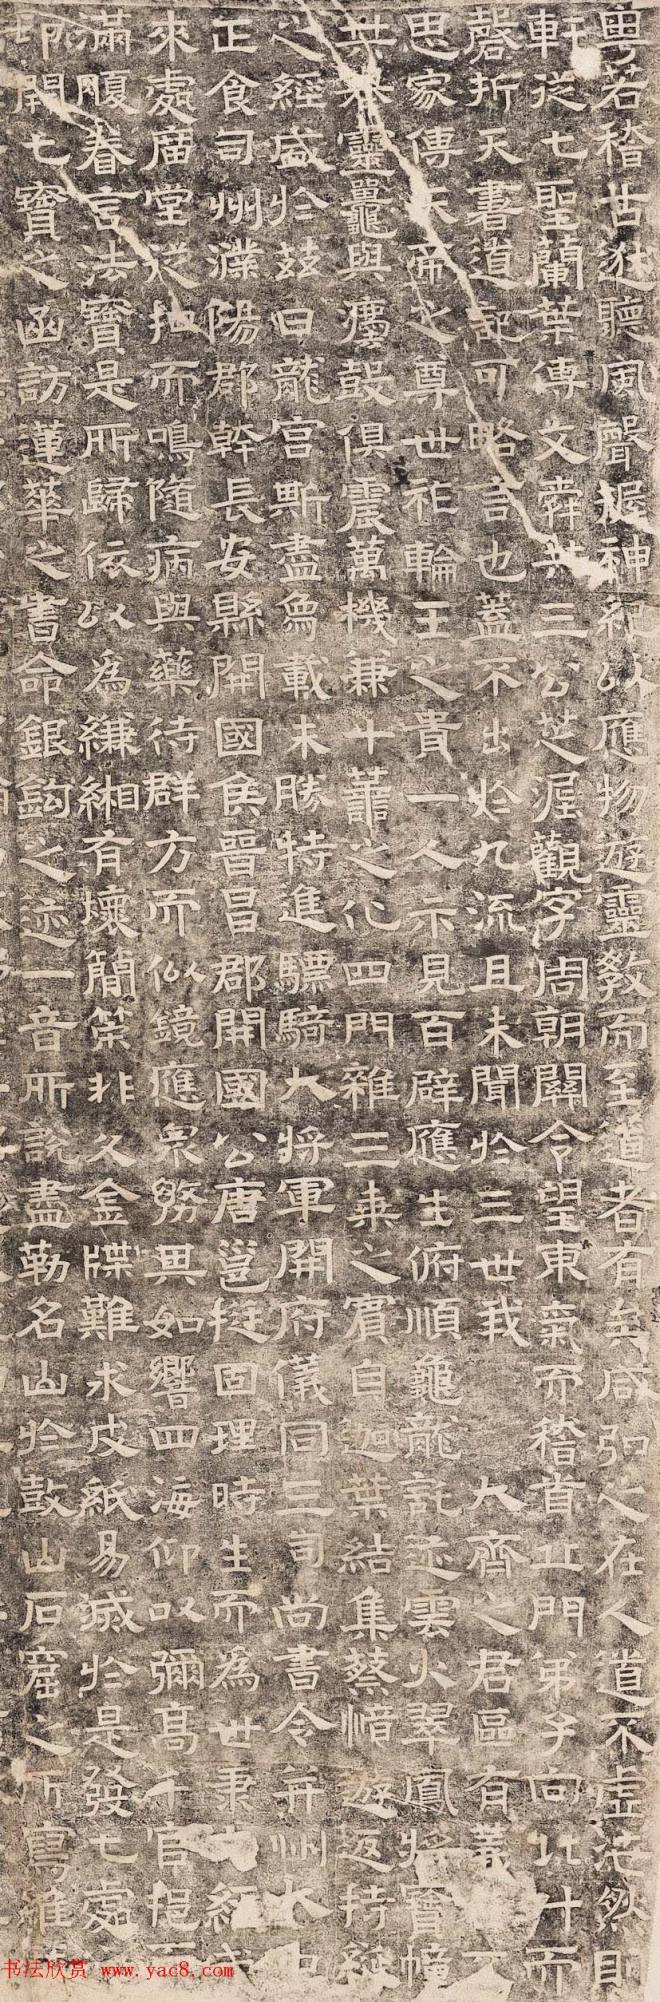 粤若稽古逖聽風聲握神視以應物遊靈教而至道者有矣咸弘之在人道不虛茫然則
軒從七聖蘭葉傳文舜共三公芝泥觀字周朝關令望東氣而稽首丘門弟子向北斗而
磬折天書道記可略言也蓋不出於九流且未聞於三世我大齊之君區有義
思家傳天帝之尊世祚輪王之貴一人示見百辟應生俯順龜龍託迹雲火翠鳳將寶幢
共 靈鼉與鷹鼓俱震萬機兼十善之化四門雜三乘之賓自迦葉結集蔡愔遊返持綖
之經盛於茲日龍宮斯盡烏載未勝特進驃騎大將軍開府儀同三司尚書令并州大中
正食司州濮陽郡幹長安縣開國侯晉昌郡開國公唐邕挺固理時生而為世秉 經
來處廣堂從扣而鳴隨病與藥待群方而似鏡應眾務其如響四海仰以彌高千官挹而
滿頤眷言法寶是所歸依以為縑緗有壞簡策非久金牒難求皮紙易滅於是發七處
印開七寶之函訪蓮華之書命銀鉤之迹一音所說盡勒名山於鼓山石窟之所寫維
书法欣赏 www.yac8.com